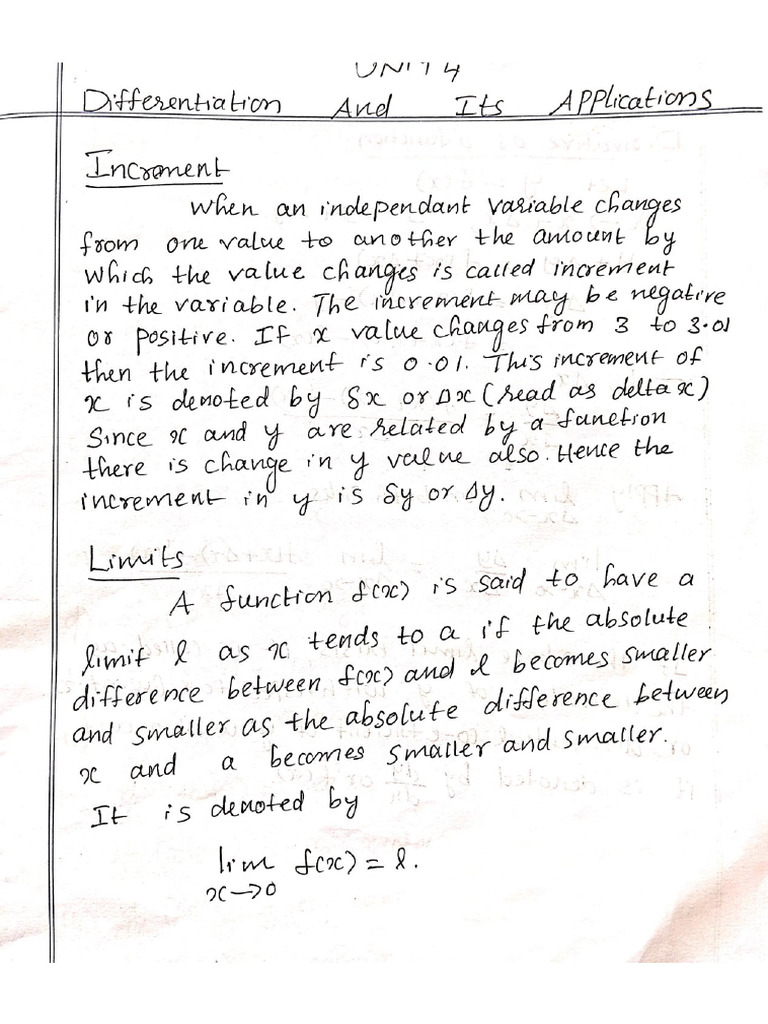 UNIT 4
Differentiation And Its Applications
Increment
When an independant variable changes
from one value to another the amount by
which the value changes is called increment
in the variable. The increment may be negative
or positive. If x value changes from 3 to 3.01
then the increment is 0.01. This increment of
x is denoted by δx or Δx (read as delta x)
Since x and y are related by a function
there is change in y value also. Hence the
increment in y is δy or Δy.
Limits
A function f(x) is said to have a
limit l as x tends to a if the absolute
difference between f(x) and l becomes smaller
and smaller as the absolute difference between
x and a becomes smaller and smaller.
It is denoted by
lim f(x) = l.
x→0